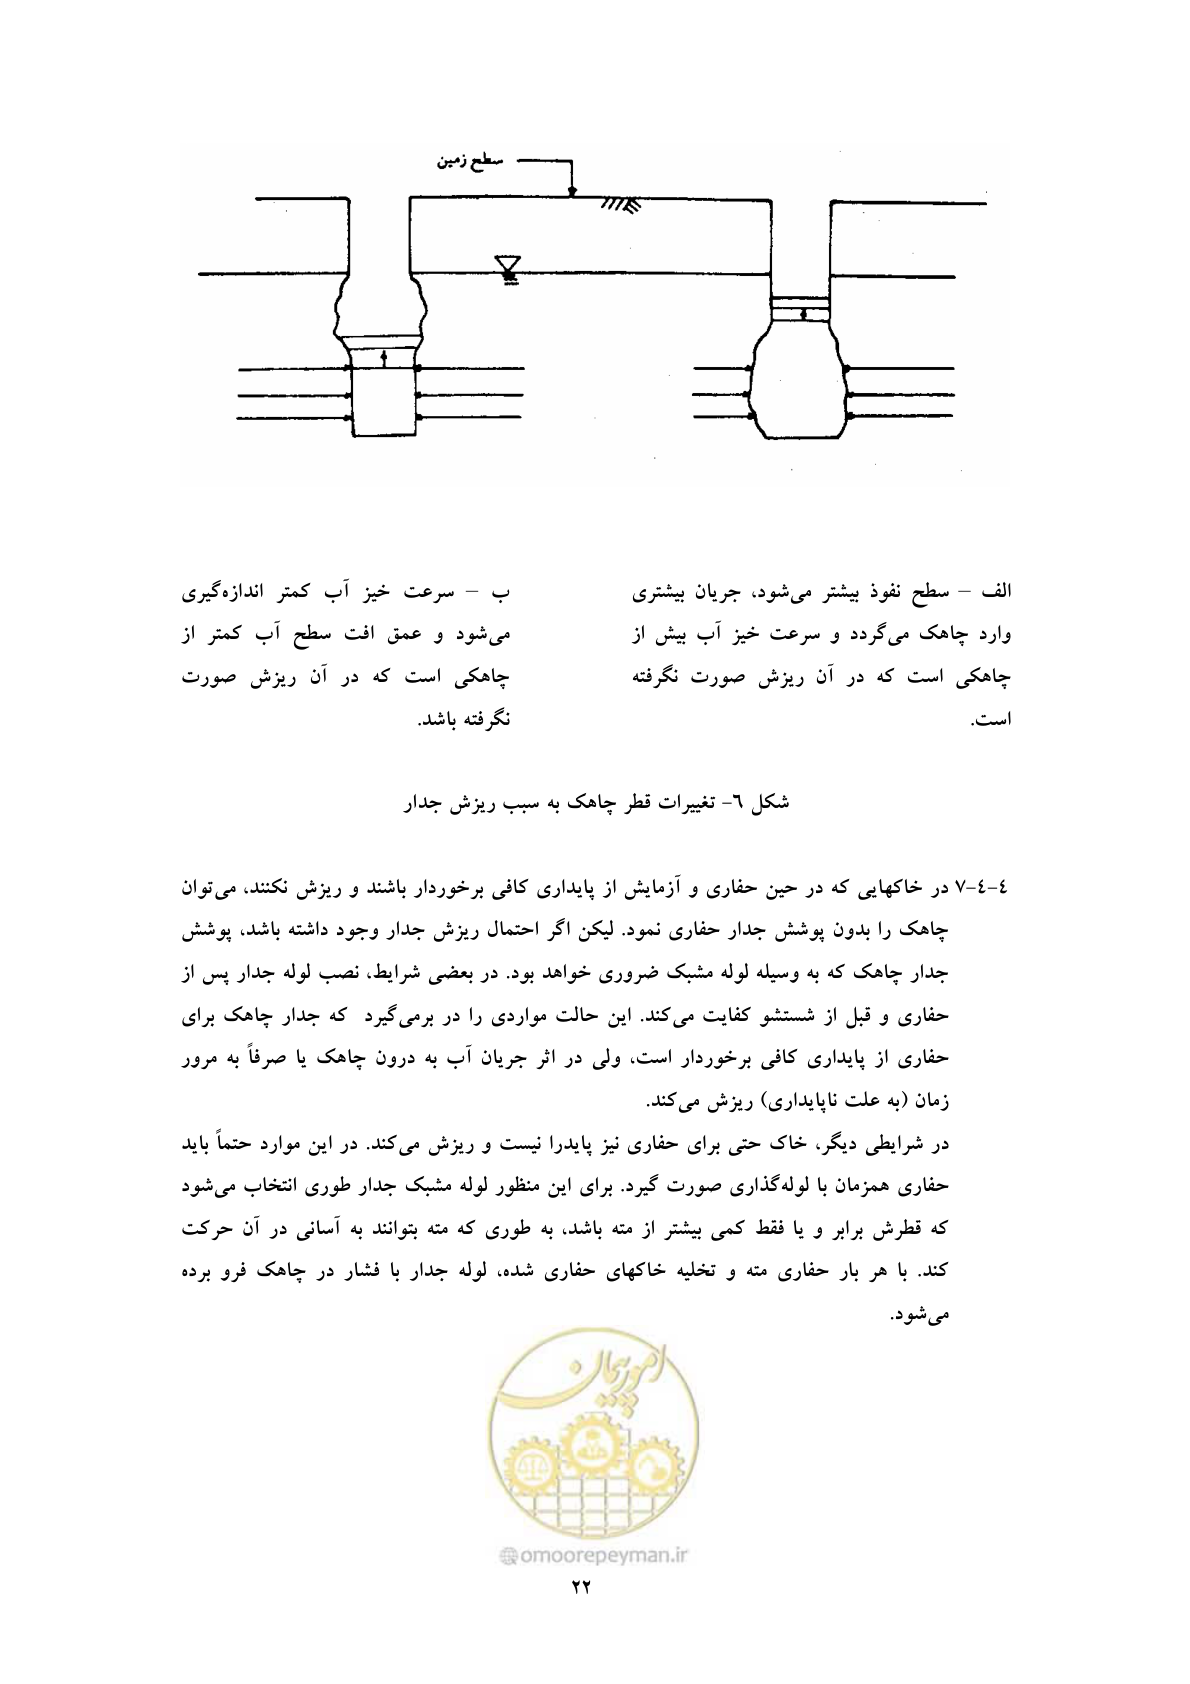 سطح زمین
الف – سطح نفوذ بیشتر می‌شود، جریان بیشتری
وارد چاهک می‌گردد و سرعت خیز آب بیش از
چاهکی است که در آن ریزش صورت نگرفته
است.
ب – سرعت خیز آب کمتر اندازه‌گیری
می‌شود و عمق افت سطح آب کمتر از
چاهکی است که در آن ریزش صورت
نگرفته باشد.
شکل ٦- تغییرات قطر چاهک به سبب ریزش جدار
٧-٤-٤ در خاکهایی که در حین حفاری و آزمایش از پایداری کافی برخوردار باشند و ریزش نکنند، می‌توان
چاهک را بدون پوشش جدار حفاری نمود. لیکن اگر احتمال ریزش جدار وجود داشته باشد، پوشش
جدار چاهک که به وسیله لوله مشبک ضروری خواهد بود. در بعضی شرایط، نصب لوله جدار پس از
حفاری و قبل از شستشو کفایت می‌کند. این حالت مواردی را در برمی‌گیرد که جدار چاهک برای
حفاری از پایداری کافی برخوردار است، ولی در اثر جریان آب به درون چاهک یا صرفاً به مرور
زمان (به علت ناپایداری) ریزش می‌کند.
در شرایطی دیگر، خاک حتی برای حفاری نیز پایدرا نیست و ریزش می‌کند. در این موارد حتماً باید
حفاری همزمان با لوله‌گذاری صورت گیرد. برای این منظور لوله مشبک جدار طوری انتخاب می‌شود
که قطرش برابر و یا فقط کمی بیشتر از مته باشد، به طوری که مته بتوانند به آسانی در آن حرکت
کند. با هر بار حفاری مته و تخلیه خاکهای حفاری شده، لوله جدار با فشار در چاهک فرو برده
می‌شود.
امور پیمان
omoorepeyman.ir
٢٢